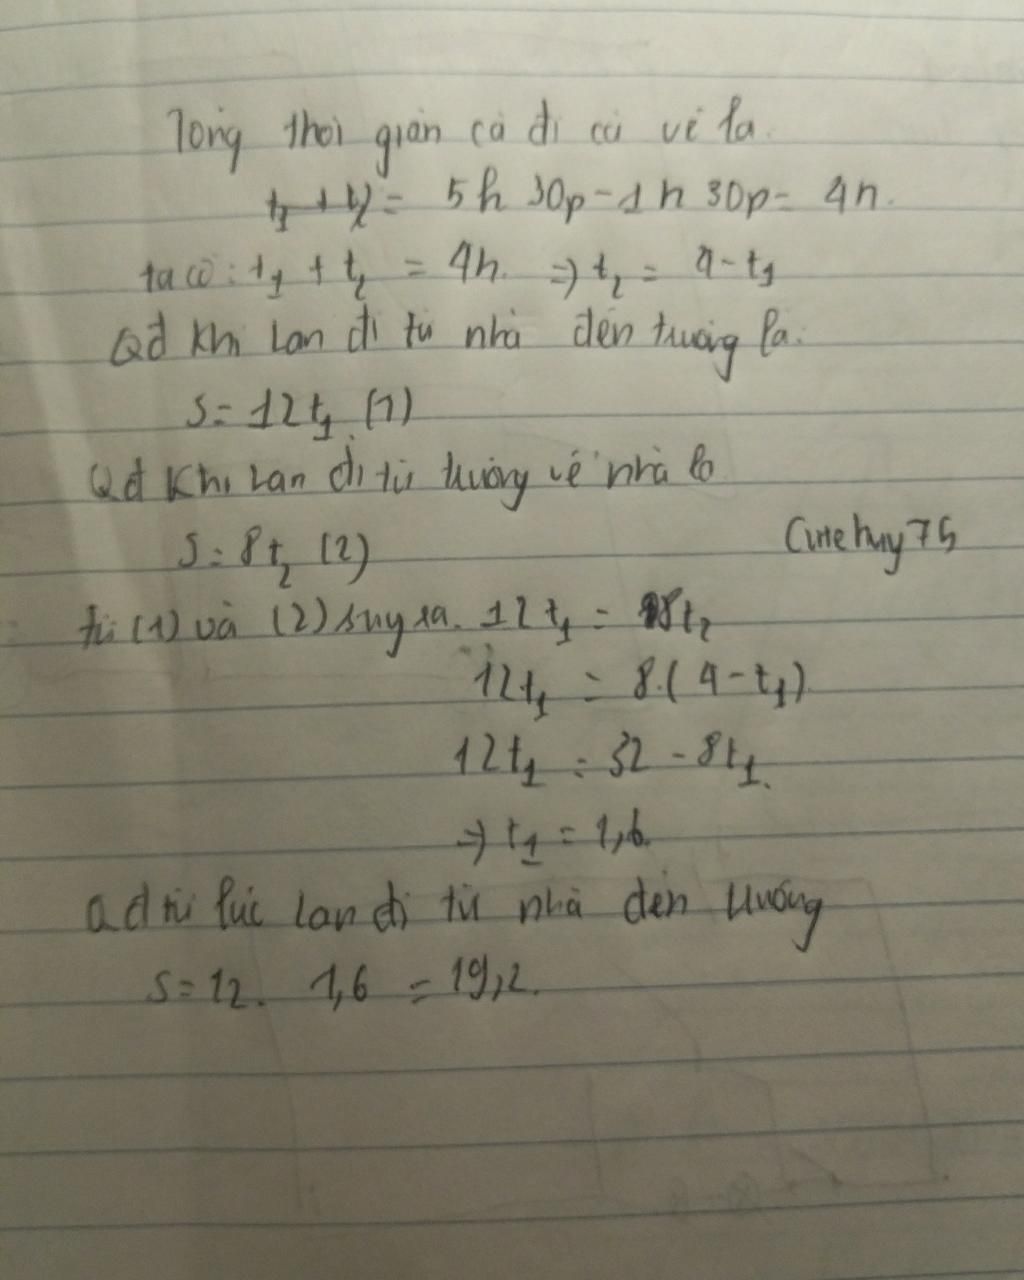 Tổng thời gian cả đi cả về là.
t₁ + t₂ = 5h 30p - 1h 30p = 4h.
ta có: t₁ + t₂ = 4h. => t₂ = 4 - t₁
Qđ khi Lan đi từ nhà đến trường là:
S = 12t₁ (1)
Qđ khi Lan đi từ trường về nhà là
S = 8t₂ (2)
Cutehuy75
từ (1) và (2) suy ra. 12t₁ = 8t₂
12t₁ = 8.(4 - t₁)
12t₁ = 32 - 8t₁.
=> t₁ = 1,6.
Qđ từ lúc Lan đi từ nhà đến trường
S = 12. 1,6 = 19,2.